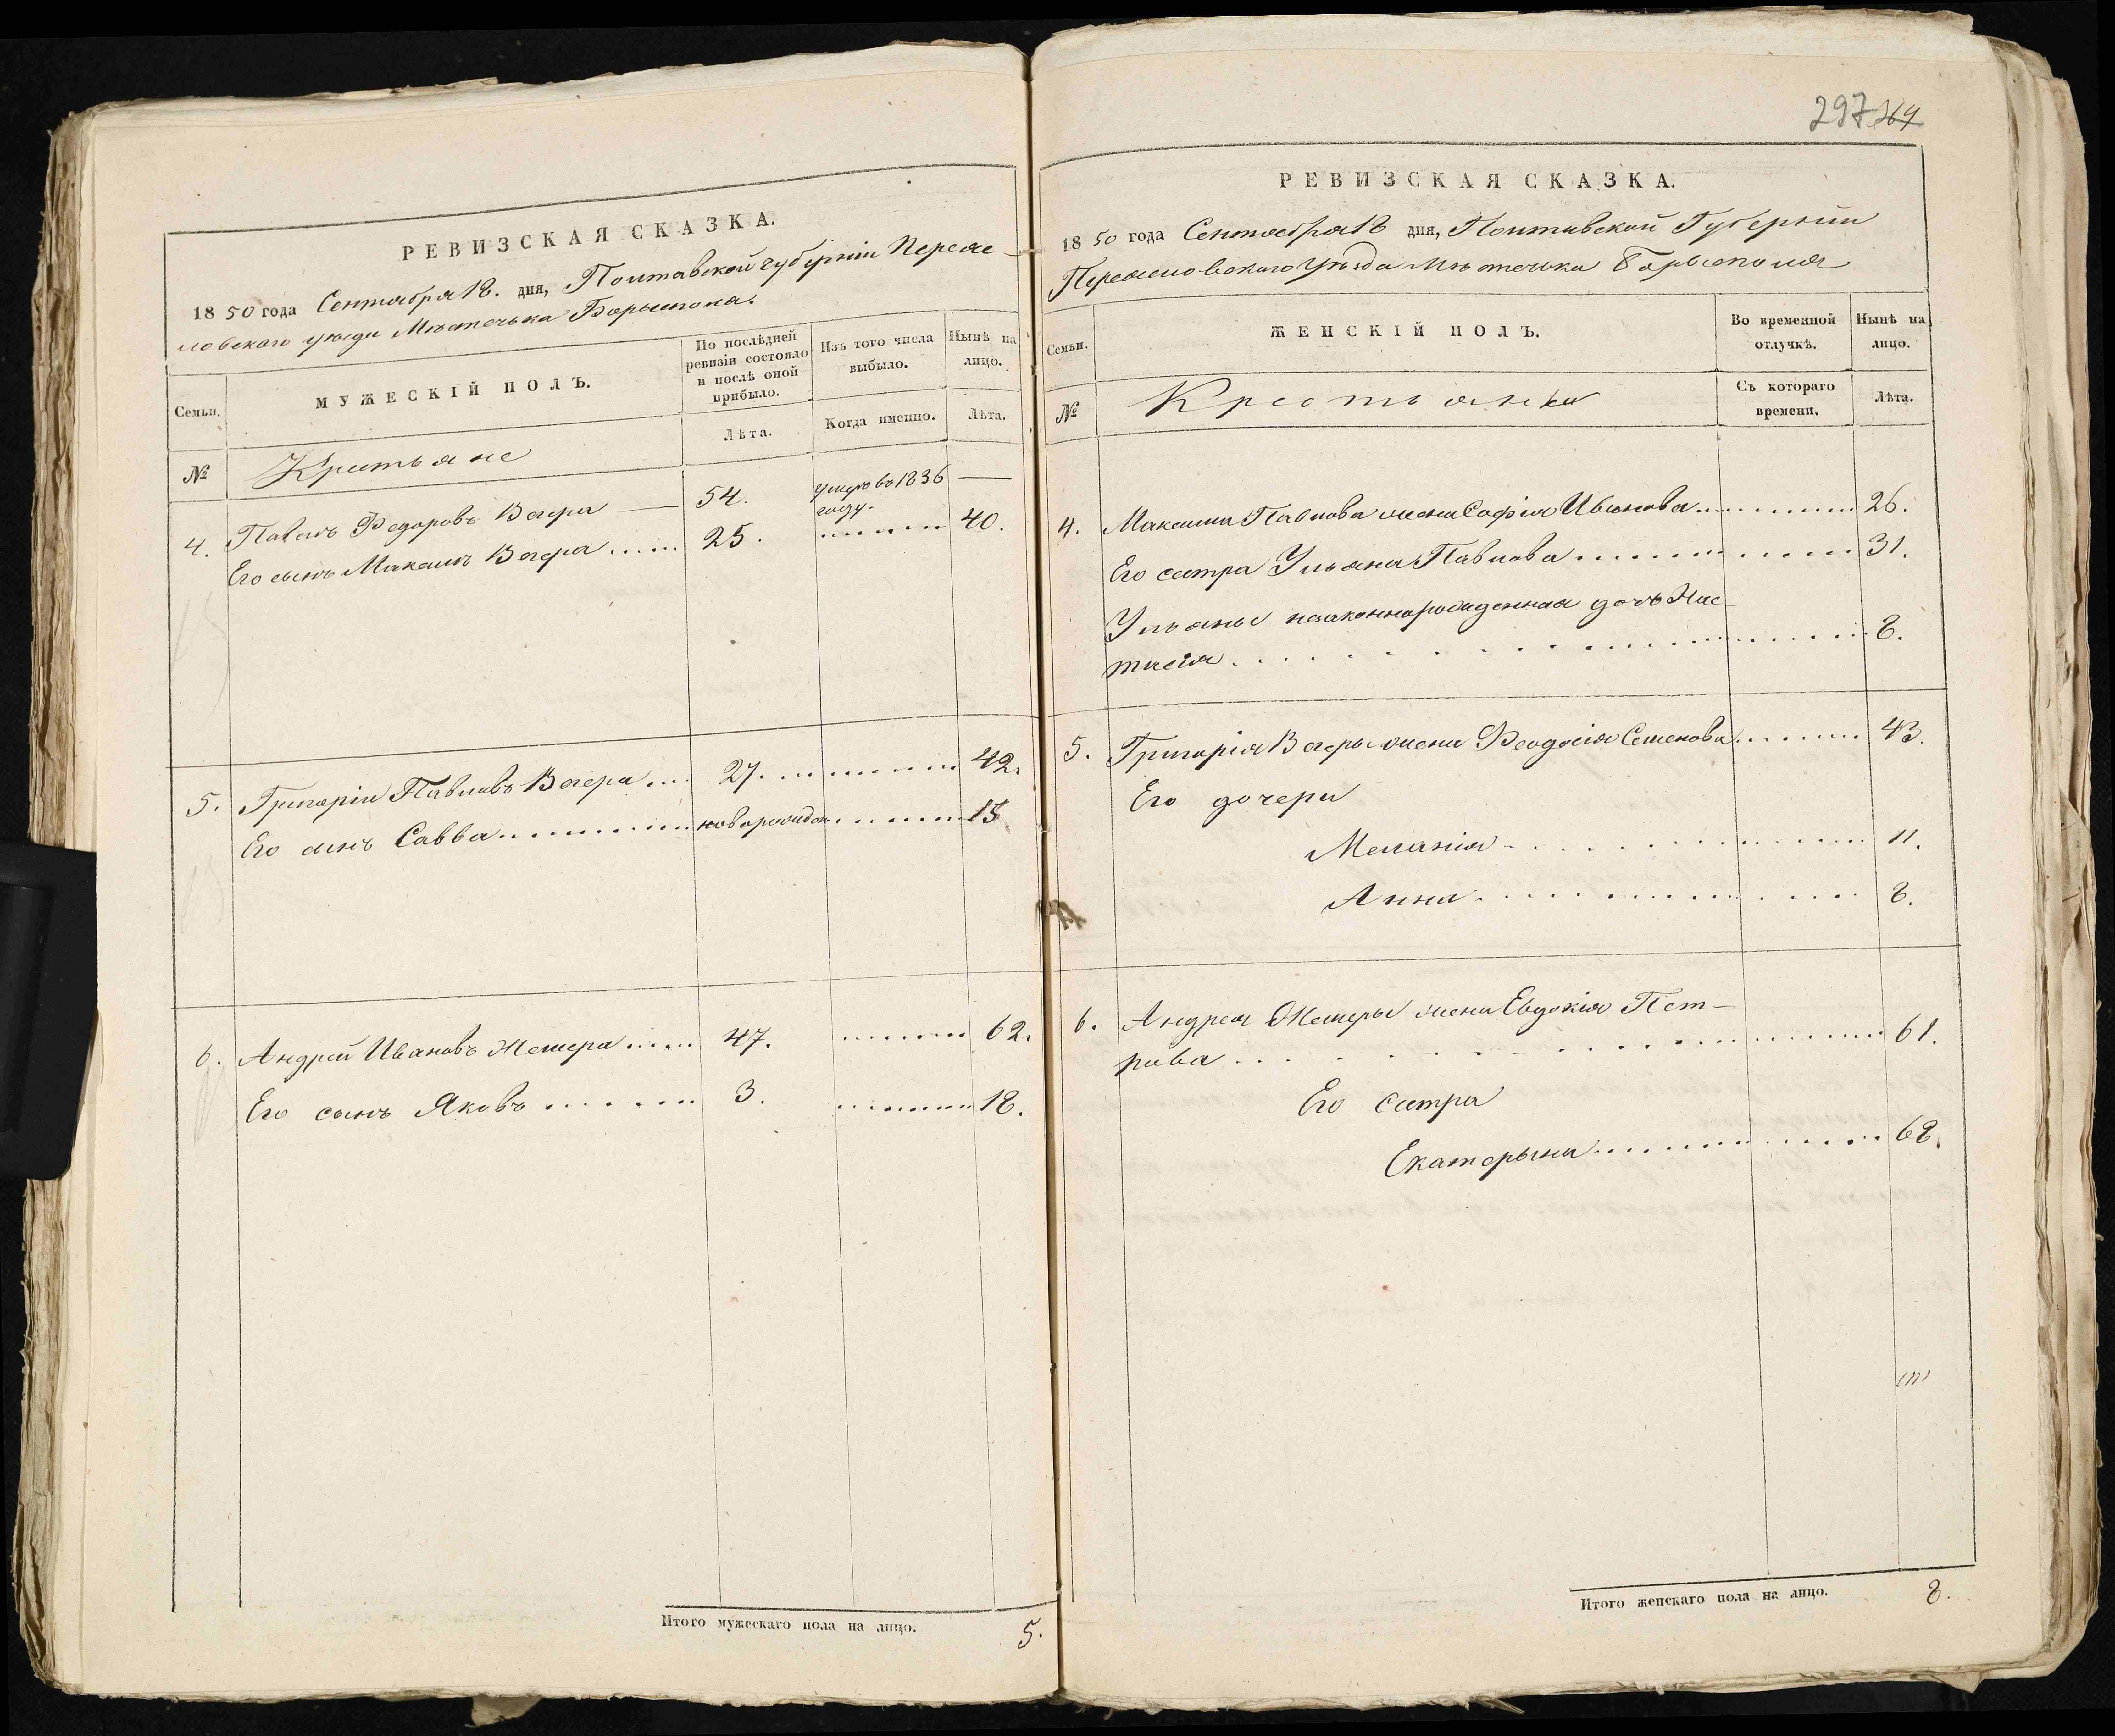 РЕВИЗСКАЯ СКАЗКА.
1850 года Сентября 18. дня, Полтавской губерніи Переяс-
ловскаго уезда Мѣстечька Борысполя.
Семьи.
МУЖЕСКІЙ ПОЛЪ.
По послѣдней ревизіи состояло и послѣ оной прибыло.
Изъ того числа выбыло.
Нынѣ на лицо.
№
Крестьяне
Лѣта.
Когда именно.
Лѣта.
4. Павелъ Федоровъ Вечера — 54. умеръ въ 1836 —
году.
Его сынъ Максимъ Вечера ..... 25. ....... 40.
5. Григорій Павловъ Вечера ... 27. ......... 42.
Его сынъ Савва ............ новорожден. ....... 15
6. Андрей Ивановъ Жемера ..... 47. ....... 62.
Его сынъ Яковъ ....... 3. ........ 18.
Итого мужескаго пола на лицо. 5.
297 264
РЕВИЗСКАЯ СКАЗКА.
1850 года Сентября 18 дня, Полтавской Губерніи
Переясловского Уѣзда Мѣстечька Борысполя
Семьи.
ЖЕНСКІЙ ПОЛЪ.
Во временной отлучкѣ.
Нынѣ на лицо.
№
Крестьянки
Съ котораго времени.
Лѣта.
4. Максима Павлова жена Софія Иванова ........... 26.
Его сестра Ульяна Павлова ............ 31.
Ульяны незаконнорожденная дочь Нас-
тасія ................ 8.
5. Григорія Вечеры жена Феодосія Семенова ....... 43.
Его дочери
Меланія ............. 11.
Анна ............. 8.
6. Андрея Жемеры жена Евдокія Пет-
рова ................ 61.
Его сестра
Екатерына ............. 68.
Итого женскаго пола на лицо. 8.